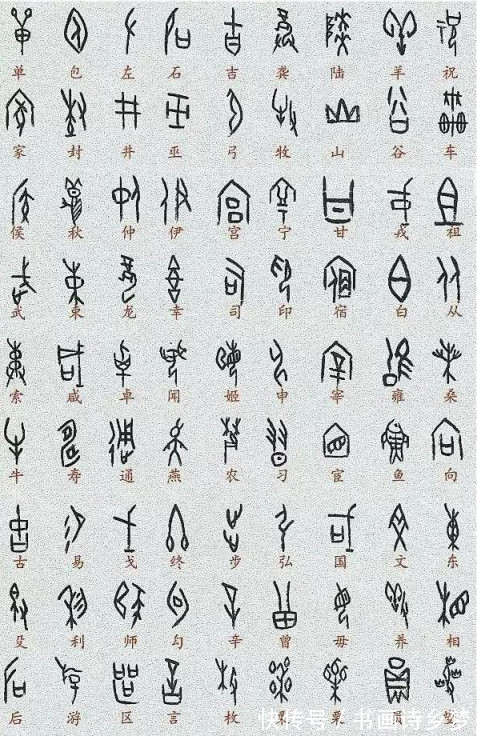 单 包 左 石 吉 龚 陆 羊 祝
家 封 井 巫 弓 牧 山 谷 车
侯 秋 仲 伊 宫 宁 甘 戎 祖
武 束 龙 幸 司 印 宿 白 从
索 咸 卓 闻 姬 申 宰 雍 桑
牛 寿 通 燕 农 习 宦 鱼 向
古 易 戈 终 步 弘 国 文 东
殳 利 师 勾 辛 曾 毋 养 相
后 游 区 言 枚
快传号/书画诗乡梦